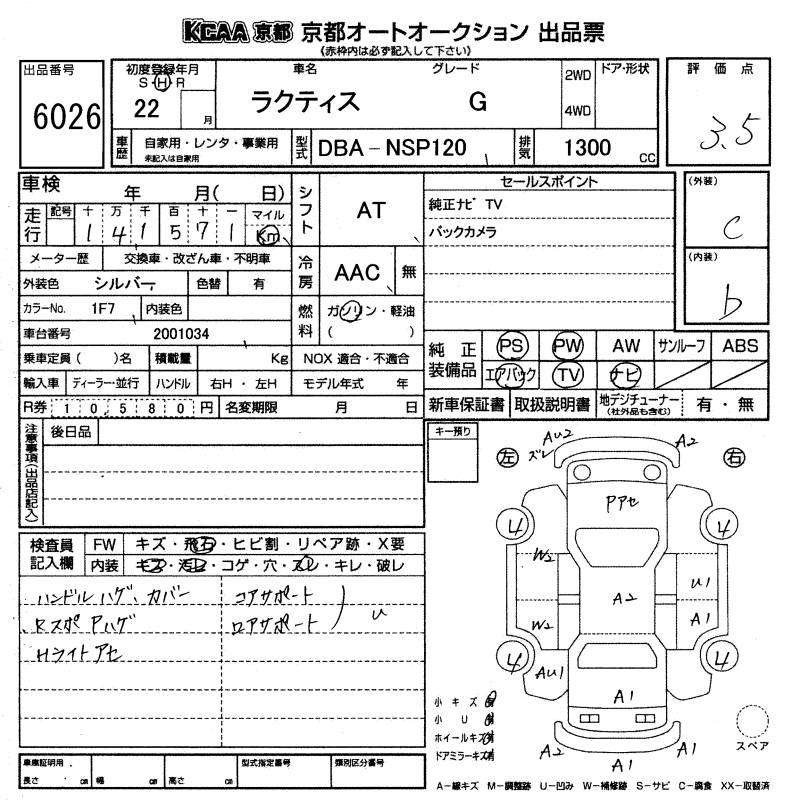 KCAA 京都 京都オートオークション 出品票
(赤枠内は必ず記入して下さい)
出品番号
6026
初度登録年月
S・H・R
22 月
車名
ラクティス
グレード
G
2WD
4WD
ドア・形状
評価点
3.5
車歴
自家用・レンタ・事業用
未記入は自家用
型式
DBA-NSP120
排気
1300 CC
車検 年 月( 日)
走行
記号 十 万 千 百 十 一 マイル
1 4 1 5 7 1 Km
メーター歴 交換車・改ざん車・不明車
外装色 シルバー 色替 有
カラーNo. 1F7 内装色
車台番号 2001034
乗車定員( )名 積載量 Kg
輸入車 ディーラー・並行 ハンドル 右H・左H
R券 10,580円 名変期限 月 日
シフト AT
冷房 AAC 無
燃料 ガソリン・軽油
( )
NOX 適合・不適合
モデル年式 年
セールスポイント
純正ナビ TV
バックカメラ
(外装)
C
(内装)
b
純正装備品
PS PW AW サンルーフ ABS
エアバック TV ナビ
新車保証書 取扱説明書 地デジチューナー
(社外品も含む)
有・無
注意事項(出品店記入)
後日品
キー預り
検査員記入欄
FW キズ・飛石・ヒビ割・リペア跡・X要
内装 キズ・汚レ・コゲ・穴・スレ・キレ・破レ
ハンドルハゲ、カバー コアサポート
RスポPハゲ ロアサポート U
Hライトアセ
左 右
AU2
ズレ
A2
Pアセ
4 4
W2
U1
A2
W2
A1
4 4
AU1
A1
A2 A1
A1
小キズ
小U
ホイールキズ
ドアミラーキズ
スペア
車庫証明用
長さ cm 幅 cm 高さ cm
型式指定番号
類別区分番号
A-線キズ M-調整跡 U-凹み W-補修跡 S-サビ C-腐食 XX-取替済